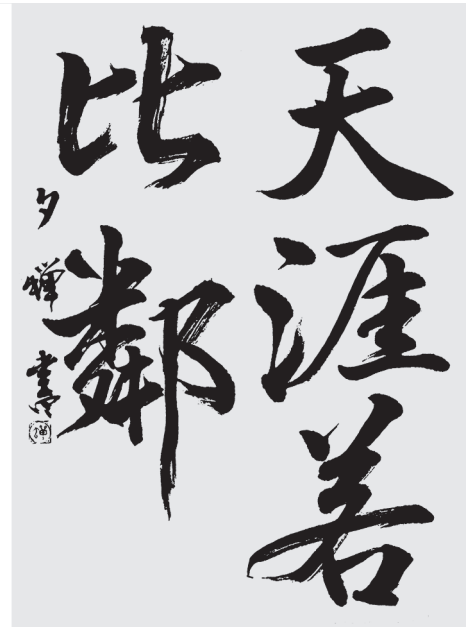 天涯若
比鄰
夕蟬書